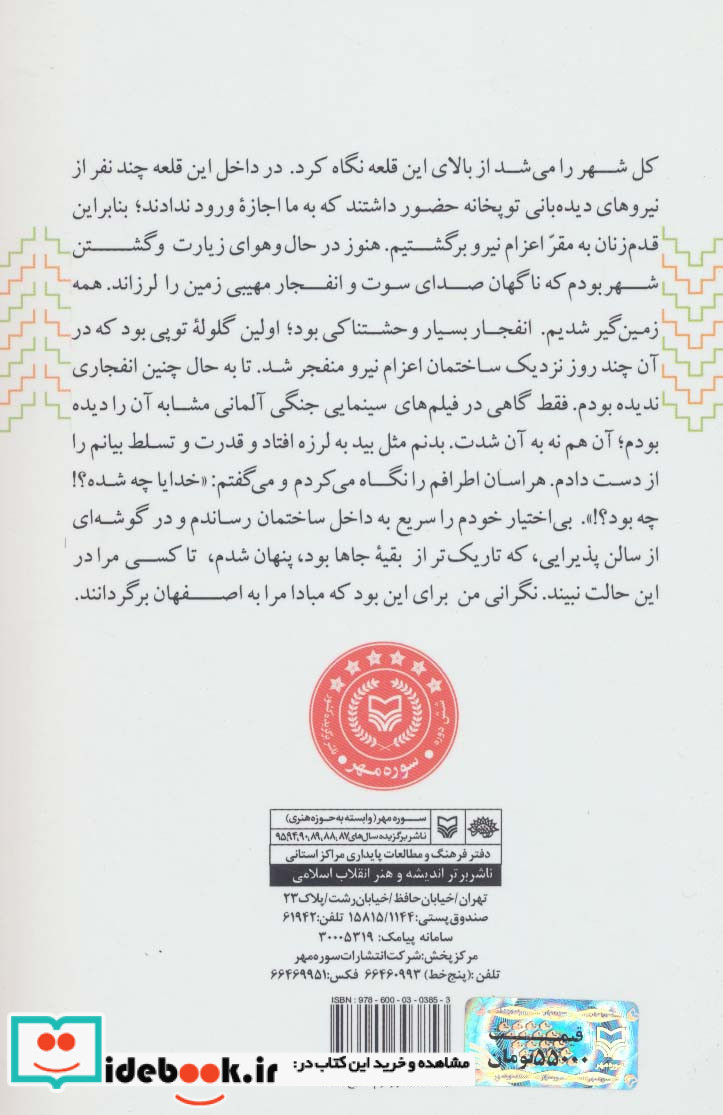 کل شهر را می‌شد از بالای این قلعه نگاه کرد. در داخل این قلعه چند نفر از
نیروهای دیده‌بانی توپخانه حضور داشتند که به ما اجازهٔ ورود ندادند؛ بنابراین
قدم‌زنان به مقرّ اعزام نیرو برگشتیم. هنوز در حال‌وهوای زیارت وگشتن
شهر بودم که ناگهان صدای سوت و انفجار مهیبی زمین را لرزاند. همه
زمین‌گیر شدیم. انفجار بسیار وحشتناکی بود؛ اولین گلولهٔ توپی بود که در
آن چند روز نزدیک ساختمان اعزام نیرو منفجر شد. تا به حال چنین انفجاری
ندیده بودم. فقط گاهی در فیلم‌های سینمایی جنگی آلمانی مشابه آن را دیده
بودم؛ آن هم نه به آن شدت. بدنم مثل بید به لرزه افتاد و قدرت و تسلط بیانم را
از دست دادم. هراسان اطرافم را نگاه می‌کردم و می‌گفتم: «خدایا چه شده؟!
چه بود؟!». بی‌اختیار خودم را سریع به داخل ساختمان رساندم و در گوشه‌ای
از سالن پذیرایی، که تاریک‌تر از بقیهٔ جاها بود، پنهان شدم، تا کسی مرا در
این حالت نبیند. نگرانی من برای این بود که مبادا مرا به اصفهان برگردانند.
شش دوره
ناشر برگزیده کشور
سوره مهر
سوره مهر (وابسته به حوزه هنری)
ناشر برگزیده سال‌های ۸۷، ۸۸، ۸۹، ۹۰، ۹۴، ۹۵
دفتر فرهنگ و مطالعات پایداری مراکز استانی
ناشر برتر اندیشه و هنر انقلاب اسلامی
تهران/خیابان حافظ/خیابان رشت/پلاک ۲۳
صندوق پستی: ۱۵۸۱۵/۱۱۴۴ تلفن: ۶۱۹۴۲
سامانه پیامک: ۳۰۰۰۵۳۱۹
مرکز پخش: شرکت انتشارات سوره مهر
تلفن: (پنج خط) ۶۶۴۶۰۹۹۳ فکس: ۶۶۴۶۹۹۵۱
ISBN : 978 - 600 - 03 - 0385 - 3
۵۵۰۰۰ تومان
سوره مهر
مشاهده و خرید این کتاب در:
idebook.ir